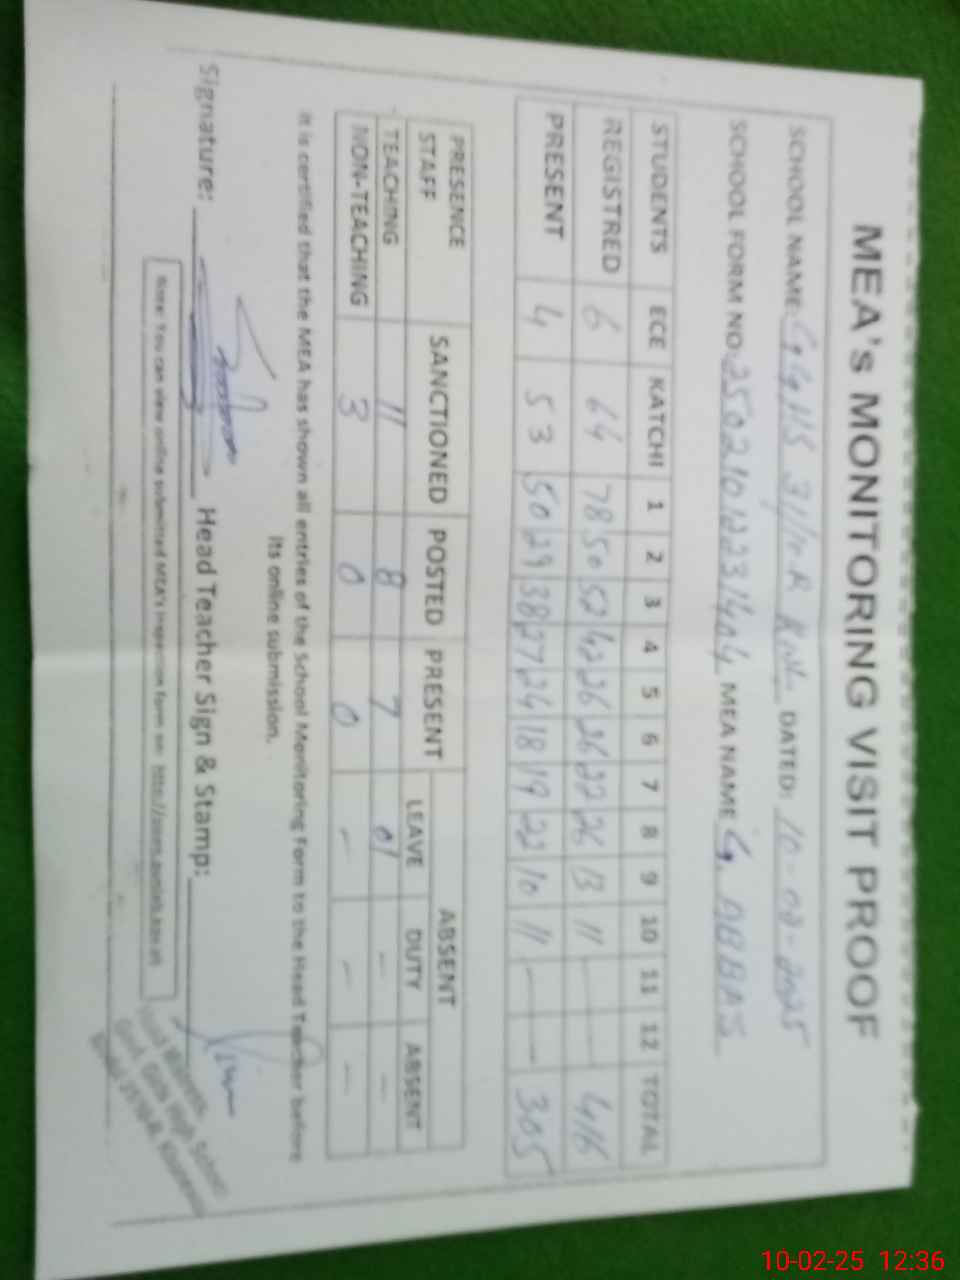 MEA's MONITORING VISIT PROOF
SCHOOL NAME: GGHS 31/10-R KWL DATED: 10-02-2025
SCHOOL FORM NO: 25021012231404 MEA NAME G. ABBAS
STUDENTS ECE KATCHI 1 2 3 4 5 6 7 8 9 10 11 12 TOTAL
REGISTRED 6 64 78 50 52 42 26 26 22 26 13 11 — — 416
PRESENT 4 53 50 29 38 27 24 18 19 22 10 11 — — 305
PRESENCE STAFF SANCTIONED POSTED PRESENT ABSENT
LEAVE DUTY ABSENT
TEACHING 11 8 7 01 — —
NON-TEACHING 3 0 0 — — —
It is certified that the MEA has shown all entries of the School Monitoring Form to the Head Teacher before
its online submission.
Signature: Head Teacher Sign & Stamp:
Note: You can view online submitted MEA's inspection form on:
Head Mistress
Govt. Girls High School
10-02-25 12:36